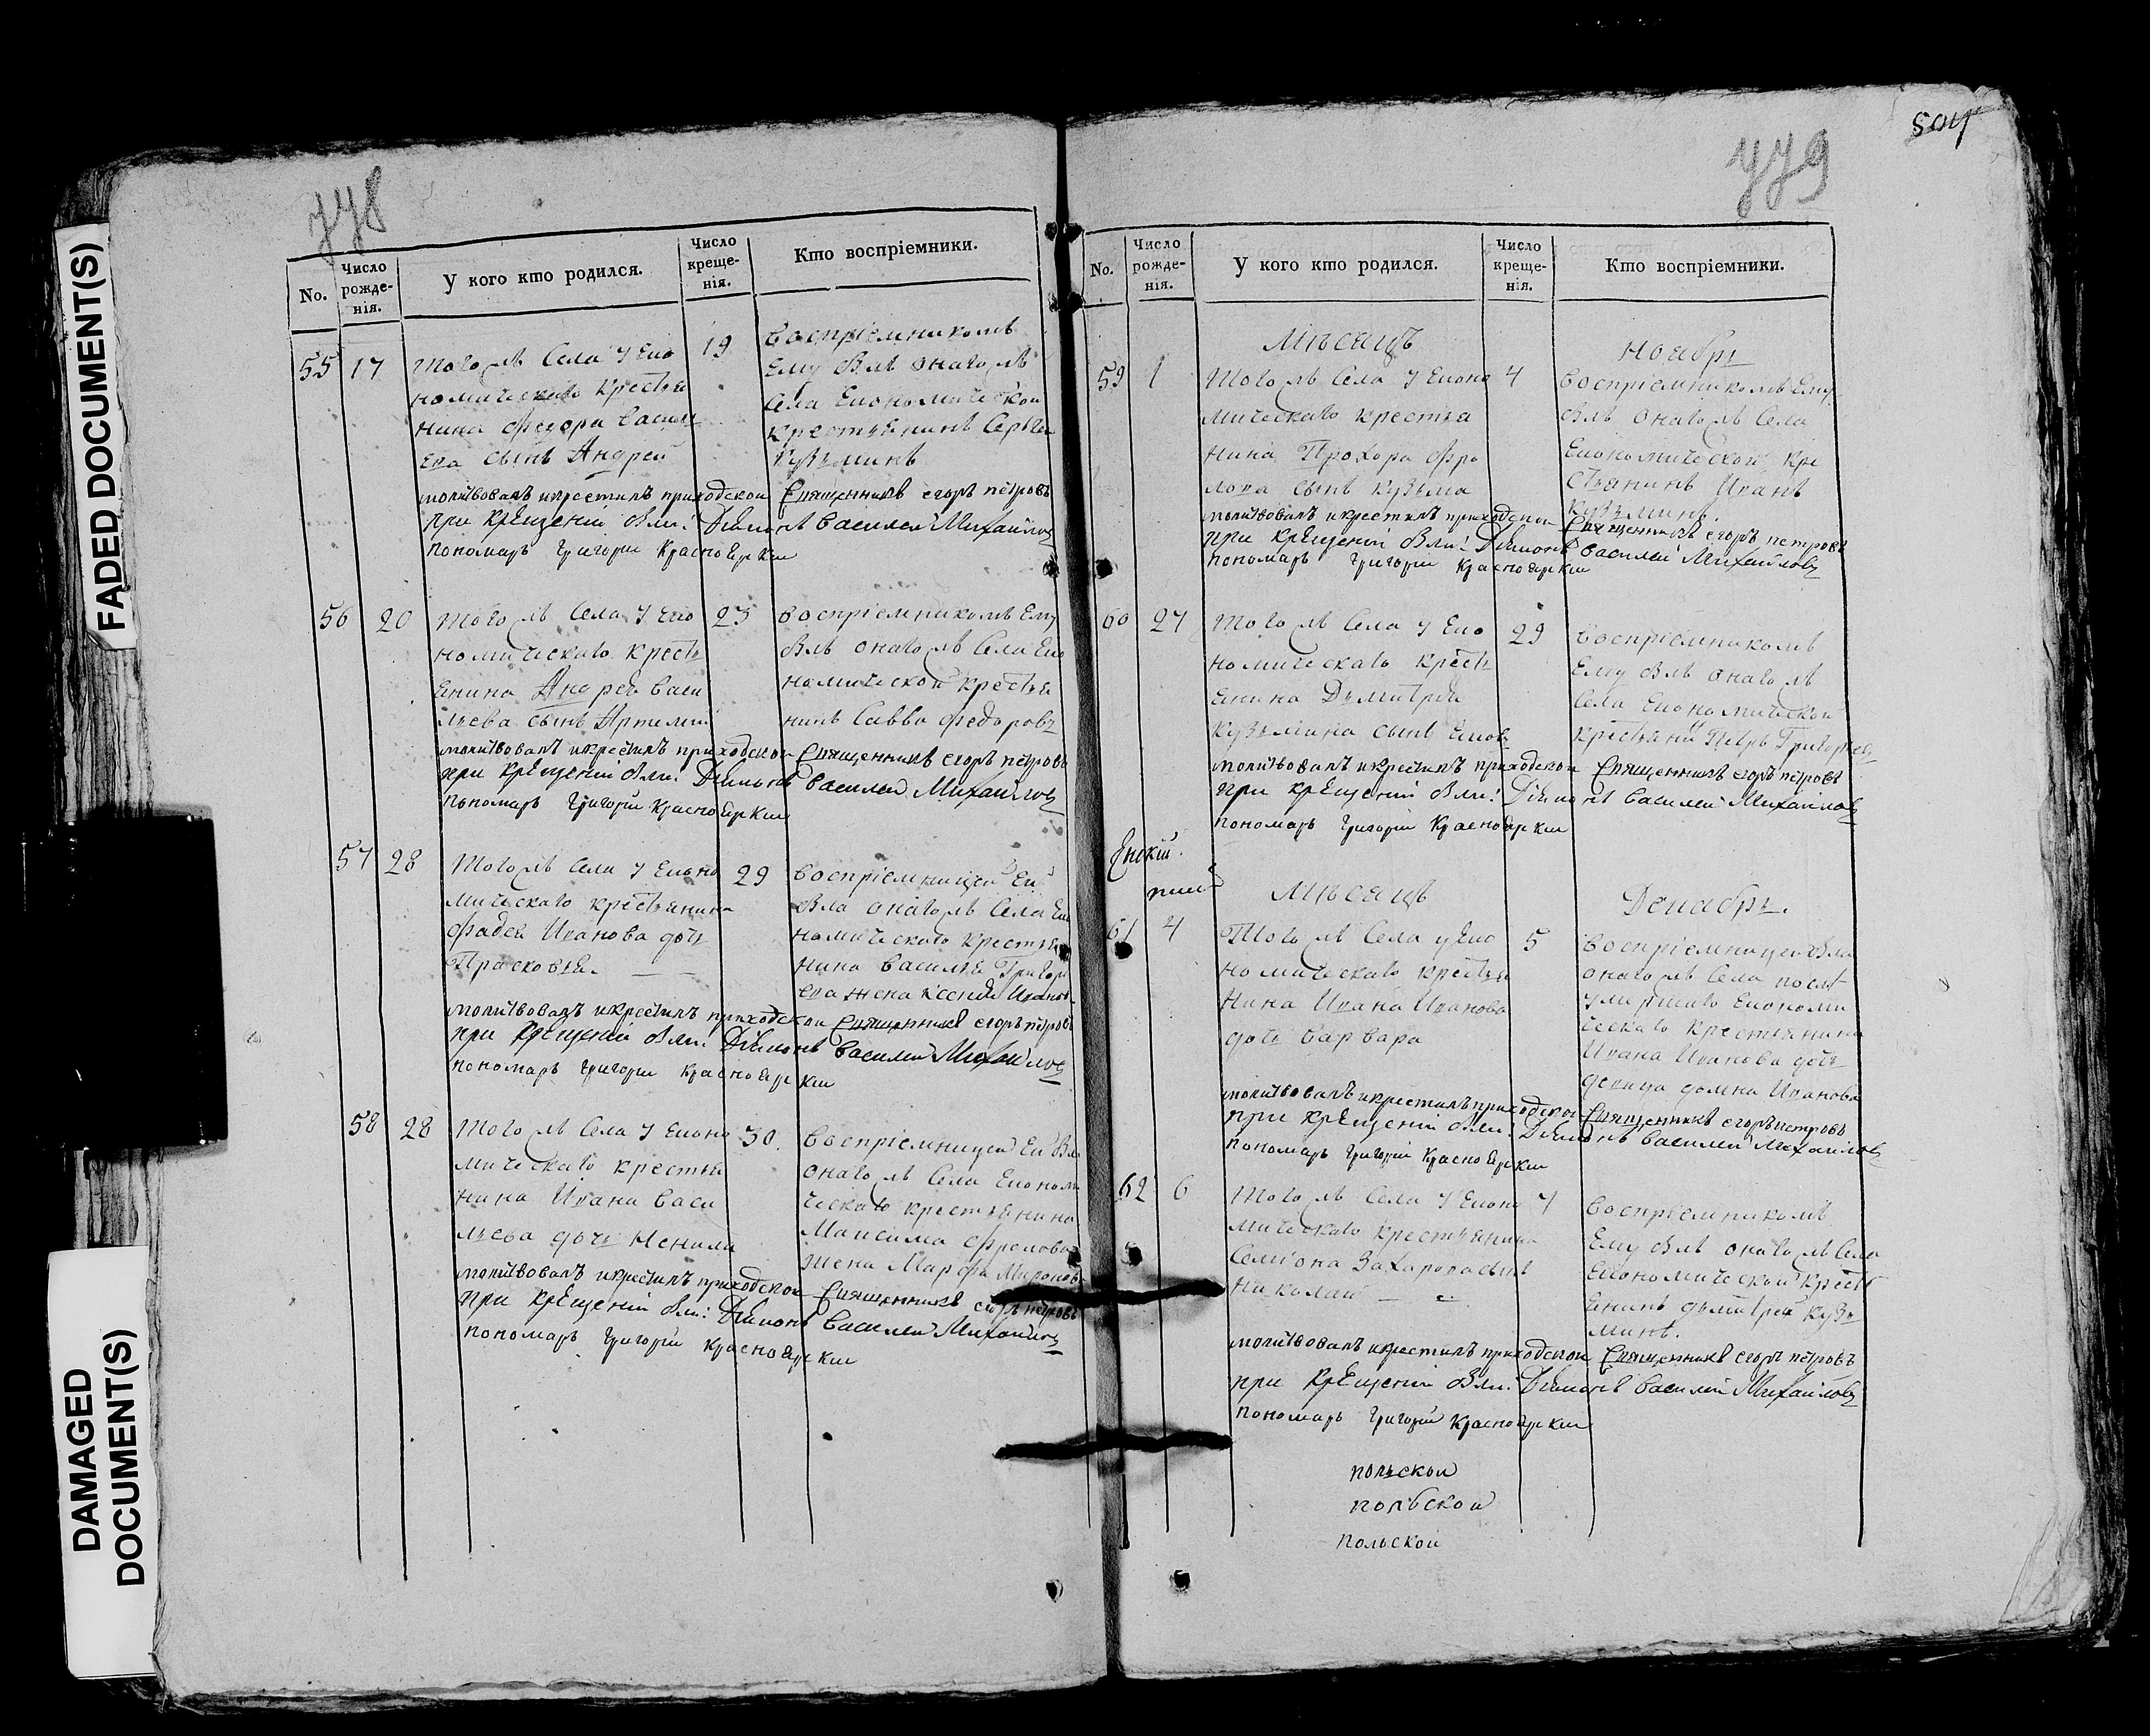 FADED DOCUMENT(S)
DAMAGED
DOCUMENT(S)
778
No.
Число
рожде-
нія.
У кого кто родился.
Число
креще-
нія.
Кто воспріемники.
55
17
Того жъ Села у Еко
номическаго крестья
нина Федора Василь
ева сынъ Андрей
19
воспріемникомъ
Ему былъ онагожъ
Села Економической
крестьянинъ Сергей
Кузьминъ
молитвовалъ и крестилъ приходской Священникъ егоръ петровъ
при крещеній были: Дьяконъ василей Михайловъ
пономарь григорій Красноярскій
56
20
Того жъ Села у Еко
номическаго кресть
янина Андрея Васи
льева сынъ Артемий
23
воспріемникомъ Ему
былъ онагожъ Села Еко
номической крестья
нинъ Савва Федоровъ
молитвовалъ и крестилъ приходской Священникъ егоръ петровъ
при крещеній были: Дьяконъ василей Михайловъ
пономарь григорій Красноярскій
57
28
Того жъ Села у Еконо
мическаго крестьянина
Фадея Иванова дочь
Прасковья
29
воспріемницей Ей
была онагожъ Села Еко
номическаго крестья
нина Василья Григорь
ева жена Ксенія Иванов
молитвовалъ и крестилъ приходской Священникъ егоръ петровъ
при крещеній были: Дьяконъ василей Михайловъ
пономарь григорій Красноярскій
58
28
Того жъ Села у Еконо
мическаго крестья
нина Ивана Васи
льева дочь Ненила
30.
воспріемницей Ей был
онагожъ Села Економи
ческаго крестьянина
Максима Фролова
жена Марфа Миронов
молитвовалъ и крестилъ приходской Священникъ егоръ петровъ
при крещеній были: Дьяконъ Василей Михайловъ
пономарь григорій красноярскій
779
No.
Число
рожде-
нія.
У кого кто родился.
Число
креще-
нія.
Кто воспріемники.
Мѣсяцъ
Ноябрь
59
1
Того жъ Села у Еконо
мическаго крестья
нина Прохора Фро
лова сынъ Кузьма
4
воспріемникомъ Ему
былъ онагожъ Села
Економической кре
стьянинъ Иванъ
Кузьминъ.
молитвовалъ и крестилъ приходской Священникъ егоръ петровъ
при крещеній были: Дьяконъ василей Михайловъ
пономарь григорій Красноярскій
60
27
Того жъ Села у Еко
номическаго кресть
янина Дьмитрія
Кузьмина сынъ
29
воспріемникомъ
Ему былъ онагожъ
Села Економической
крестьянинъ Петръ Григорьев
молитвовалъ и крестилъ приходской Священникъ егоръ петровъ
при крещеній были: Дьяконъ василей Михайловъ
пономарь григорій Красноярскій
Мѣсяцъ
Декабрь.
61
4
Того жъ Села у Еко
номическаго крестья
нина Ивана Иванова
дочь варвара
5
воспріемницей была
онагожъ Села послѣ
умершаго Економи
ческаго крестьянина
Ивана Иванова дочь
девица домна Иванова
молитвовалъ и крестилъ приходской Священникъ егоръ петровъ
при крещеній были: Дьяконъ василей Михайловъ
пономарь григорій Красноярскій
62
6
Того жъ Села у Еконо
мическаго крестьянина
Семіона Захарова сынъ
Николай
7
воспріемникомъ
Ему былъ онагожъ Села
Економической кресть
янинъ дьмитрей Кузь
минъ.
молитвовалъ и крестилъ приходской Священникъ егоръ петровъ
при крещеній были: Дьяконъ василей Михайловъ
пономарь григорій Красноярскій
польской
польской
польской